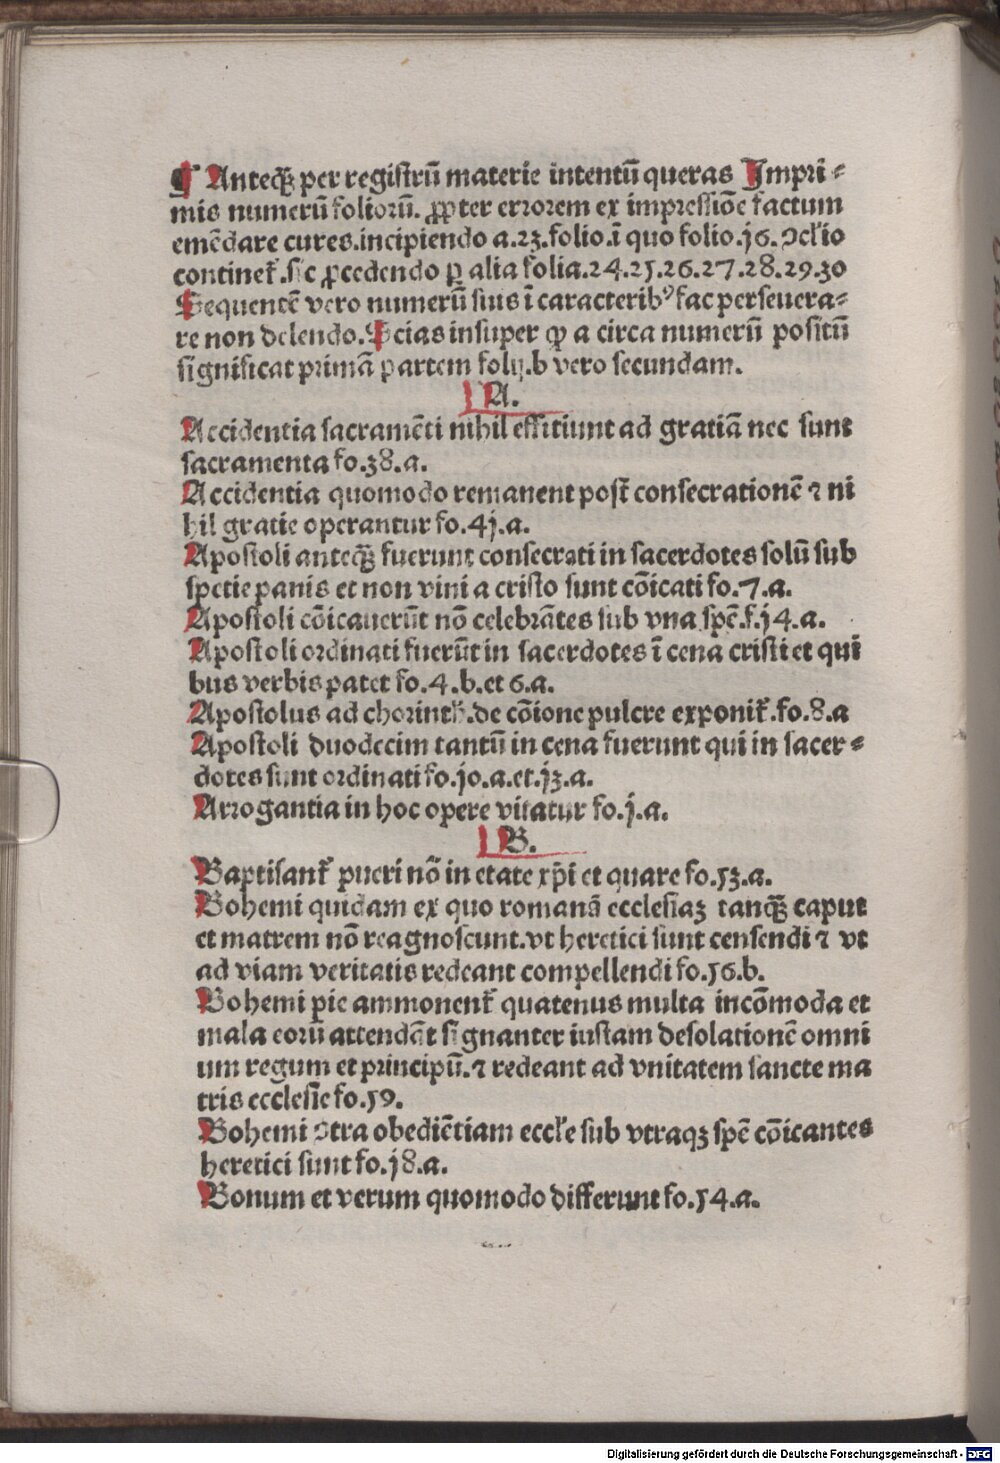 ¶ Anteq̃ꝫ per registrū materie intentū queras Impri⸗
mis numerū foliorū. ꝓpter errorem ex impressiōe factum
emēdare cures.incipiendo a.23.folio.ī quo folio.j6.ↄcl'io
continet̃.sic ꝓcedendo ꝑ alia folia.24.25.26.27.28.29.30
Sequentē vero numerū suis ī caracterib⁹ fac perseuera⸗
re non delendo.Scias insuper ꝙ a circa numerū positū
significat primā partem folij.b vero secundam.
A.
Accidentia sacramēti nihil effitiunt ad gratiā nec sunt
sacramenta fo.38.a.
Accidentia quomodo remanent post̃ consecrationē ⁊ ni
hil gratie operantur fo.4j.a.
Apostoli anteq̃ꝫ fuerunt consecrati in sacerdotes solū sub
spetie panis et non vini a cristo sunt cōicati fo.7.a.
Apostoli cōicauerūt nō celebrātes sub vna spē.f.j4.a.
Apostoli ordinati fuerūt in sacerdotes ī cena cristi et qui
bus verbis patet fo.4.b.et 6.a.
Apostolus ad chorinth̃.de cōione pulcre exponit̃.fo.8.a
Apostoli duodecim tantū in cena fuerunt qui in sacer⸗
dotes sunt ordinati fo.jo.a.et.j3.a.
Arrogantia in hoc opere vitatur fo.j.a.
B.
Baptisant̃ pueri nō in etate xp̄i et quare fo.53.a.
Bohemi quidam ex quo romanā ecclesiaꝫ tanq̃ꝫ caput
et matrem nō reagnoscunt.vt heretici sunt censendi ⁊ vt
ad viam veritatis redeant compellendi fo.56.b.
Bohemi pie ammonent̃ quatenus multa incōmoda et
mala eorū attendāt signanter iustam desolationē omni
um regum et principū.⁊ redeant ad vnitatem sancte ma
tris ecclesie fo.59.
Bohemi ↄtra obediētiam eccl'e sub vtraqꝫ spē cōicantes
heretici sunt fo.j8.a.
Bonum et verum quomodo differunt fo.54.a.
Digitalisierung gefördert durch die Deutsche Forschungsgemeinschaft - DFG